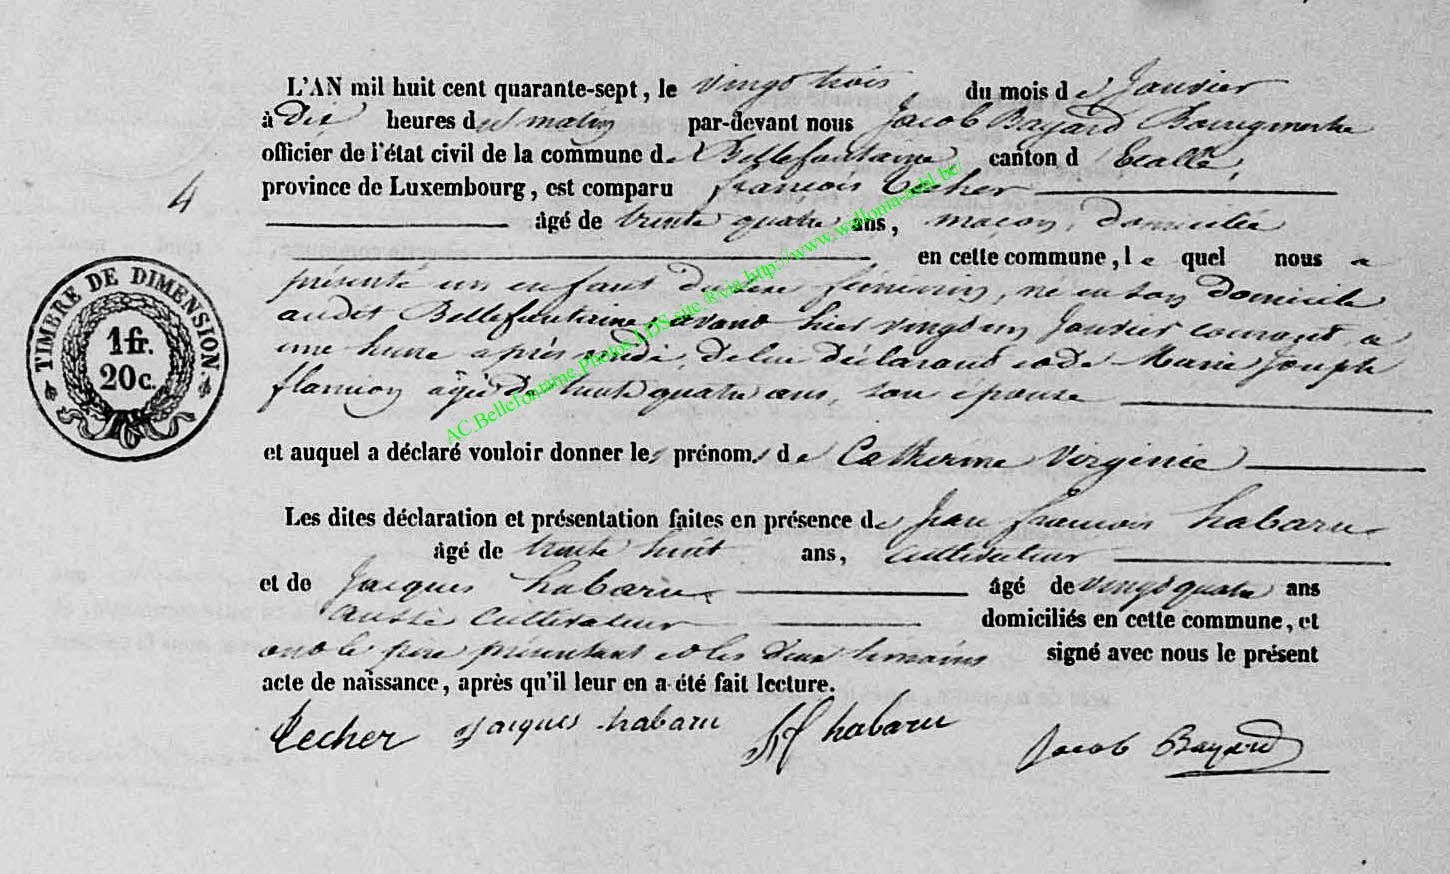 L'AN mil huit cent quarante-sept, le vingt trois du mois de Janvier
à Dix heures du matin par-devant nous Jacob Bayard Bourgmestre
officier de l'état civil de la commune de Bellefontaine, canton d'Etalle,
province de Luxembourg, est comparu françois Techer
4
âgé de trente quatre ans, maçon, domicilié
en cette commune, le quel nous a
présenté un enfant du sexe féminin, né en son domicile
audit Bellefontaine, avant hier vingt un Janvier courant, a
une heure après midi, de lui déclarant et de Marie Joseph
flamion âgée de trente quatre ans, son epouse
et auquel a déclaré vouloir donner les prénoms de Catherine Virginie
Les dites déclaration et présentation faites en présence de Jean françois habaru
âgé de trente huit ans, cultivateur
et de Jacques habaru âgé de vingt quatre ans
aussi cultivateur domiciliés en cette commune, et
ont le pere présentant et les deux temoins signé avec nous le présent
acte de naissance, après qu'il leur en a été fait lecture.
Techer Jacques habaru JF habaru Jacob Bayard
TIMBRE DE DIMENSION
1 fr.
20 c.
AC.Bellefontaine.Photos LDS-site ®via.http://www.wallonia-asbl.be/